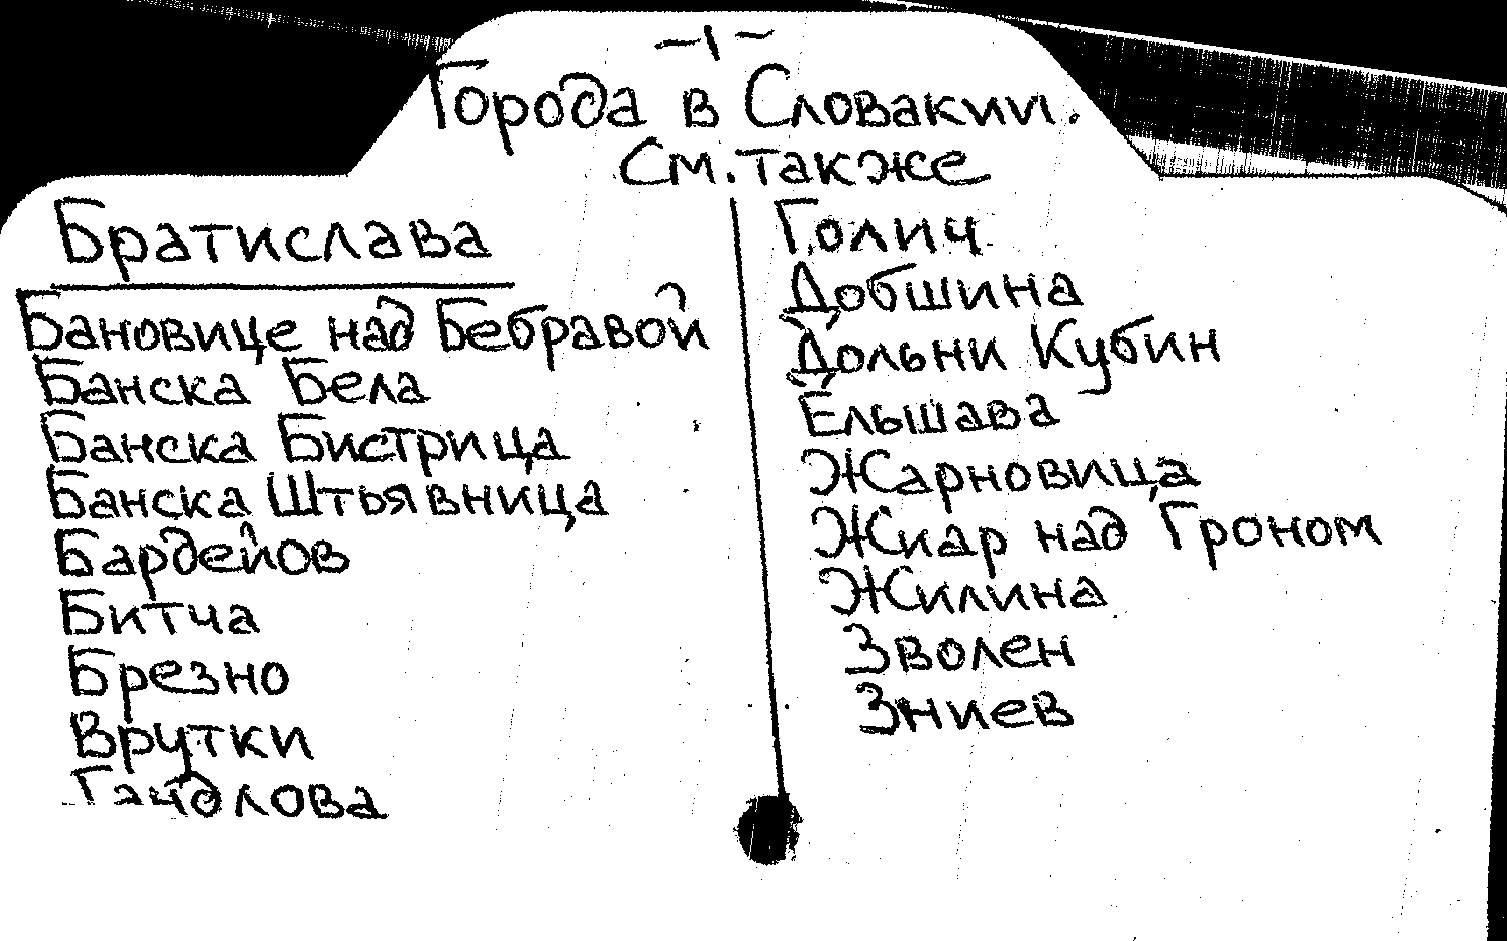 -1-
Города в Словакии.
См. также
Братислава
Бановице над Бебравой
Банска Бела
Банска Бистрица
Банска Штьявница
Бардейов
Битча
Брезно
Врутки
Гандлова
Голич
Добшина
Дольни Кубин
Ельшава
Жарновица
Жиар над Гроном
Жилина
Зволен
Зниев